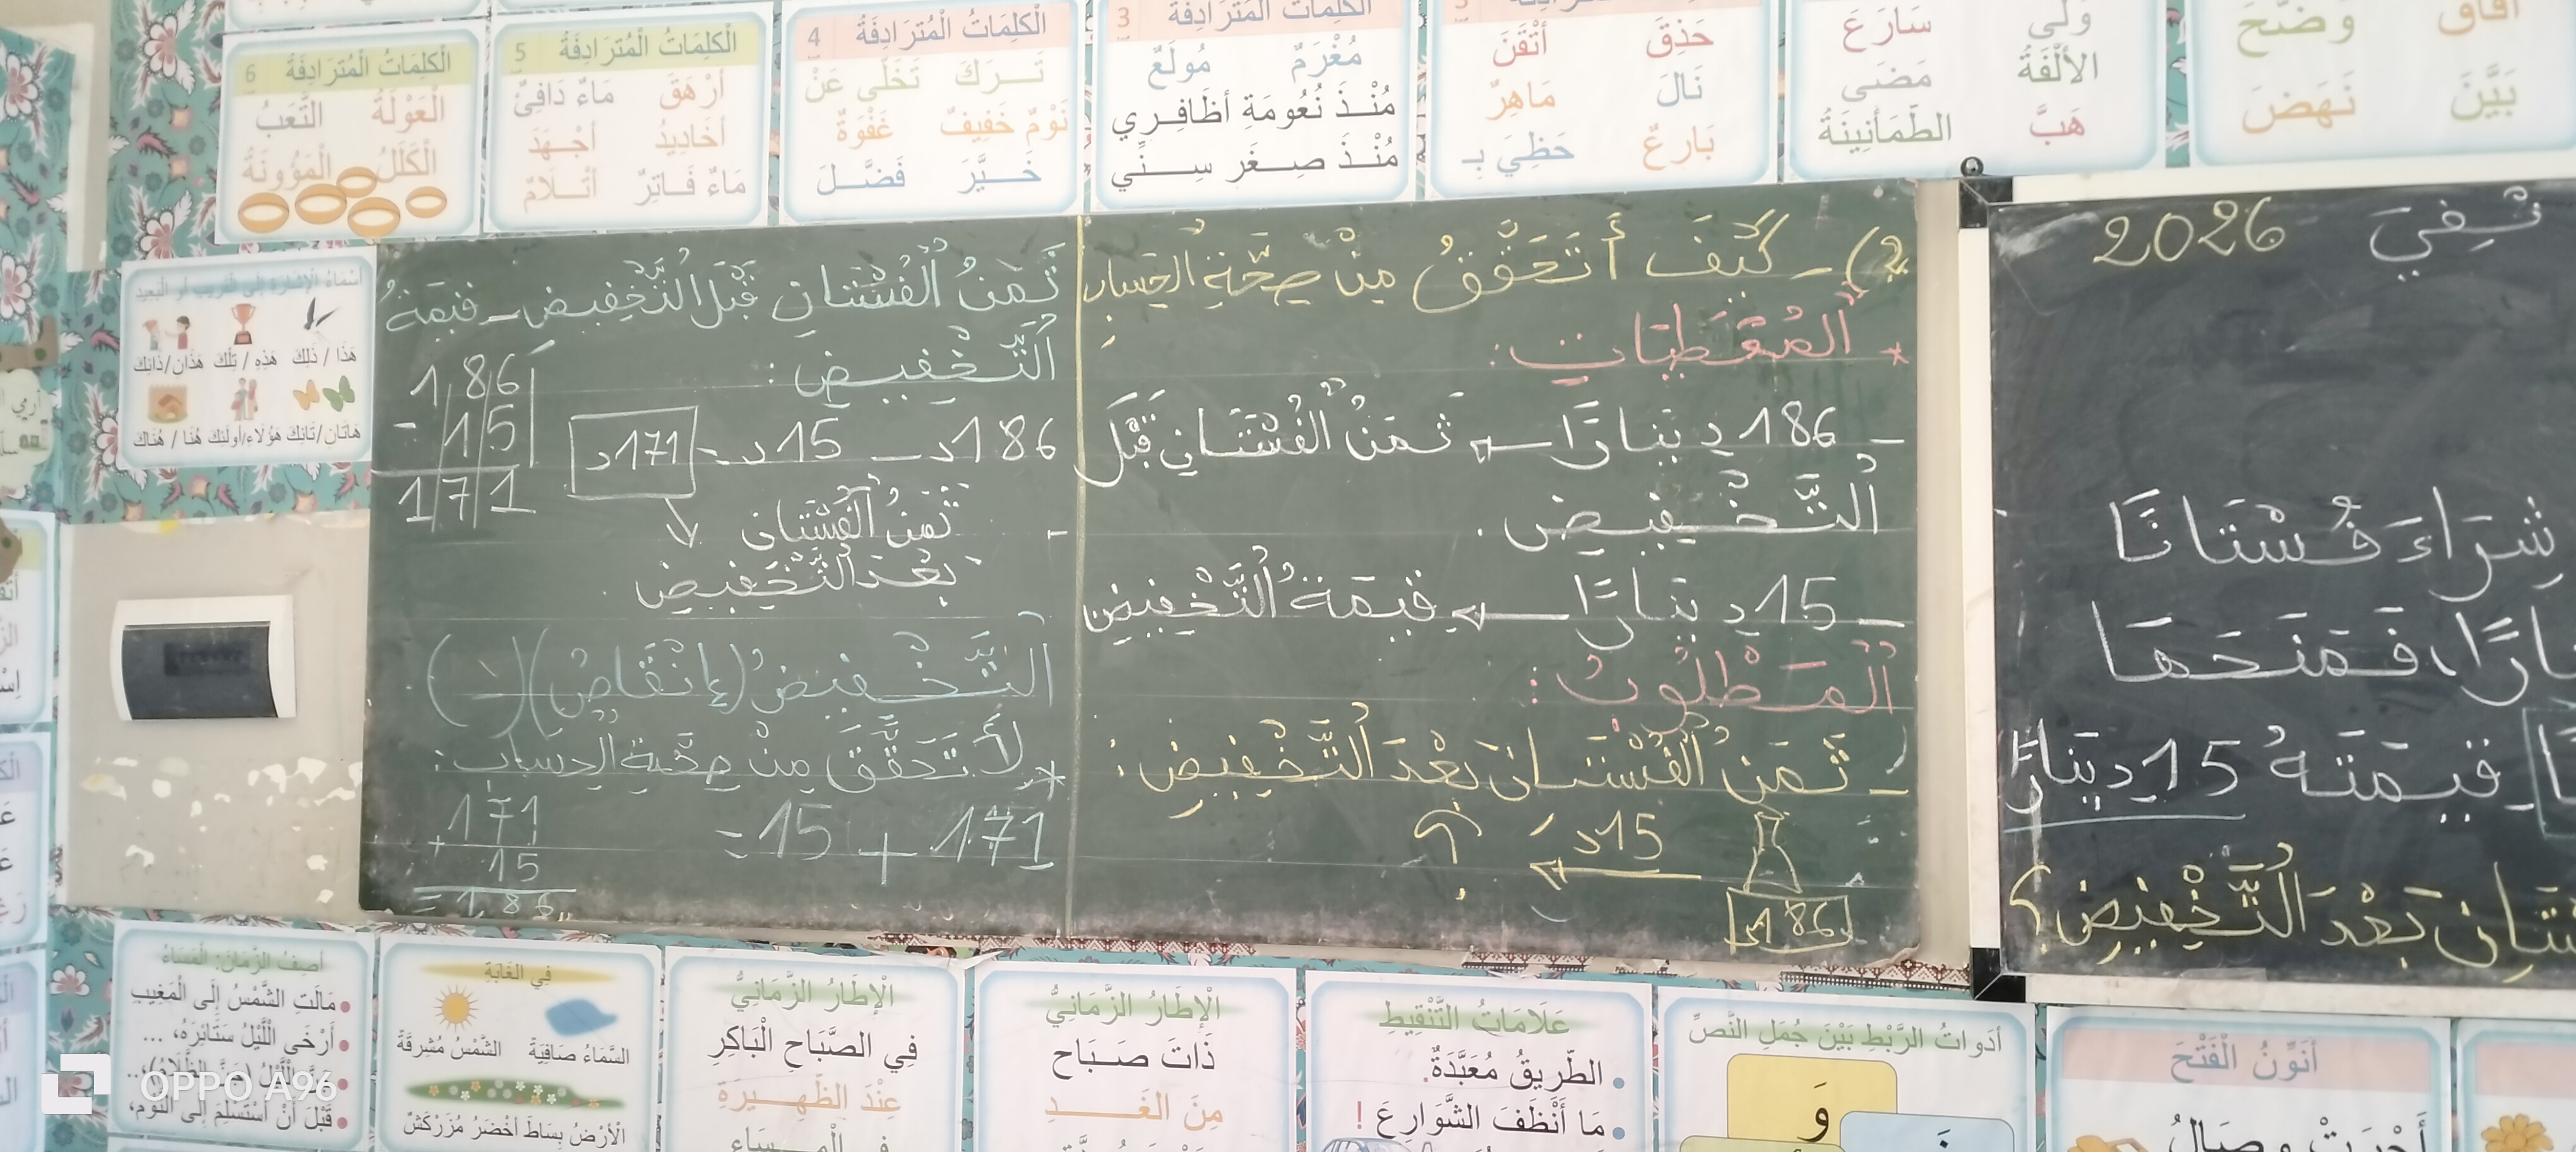 وَضَّحَ
بَيَّنَ
نَهَضَ
وَلَّى
سَارَعَ
الأُلْفَةُ
مَضَى
هَبَّ
الطُّمَأْنِينَةُ
حَذِقَ
أَتْقَنَ
نَالَ
مَاهِرٌ
بَارِعٌ
حَظِيَ بِـ
3
الْكَلِمَاتُ الْمُتَرَادِفَةُ
مُغْرَمٌ
مُولَعٌ
مُنْـذَ نُعُومَةِ أَظَافِـرِي
مُنْـذَ صِـغَر سِـنِّي
الْكَلِمَاتُ الْمُتَرَادِفَةُ 4
تَـرَكَ
تَخَلَّى عَنْ
نَوْمٌ خَفِيفٌ
غَفْوَةٌ
خَـيَّرَ
فَضَّـلَ
الْكَلِمَاتُ الْمُتَرَادِفَةُ 5
أَرْهَقَ
مَاءٌ دَافِئٌ
أَخَادِيدُ
أَجْـهَدَ
مَاءٌ فَـاتِرٌ
أَثْـلَامٌ
الْكَلِمَاتُ الْمُتَرَادِفَةُ 6
الْعَوْلَةُ
التَّعَبُ
الْكَلَلُ
الْمَؤُونَةُ
أَسْمَاءُ الْإِشَارَةِ إِلَى الْقَرِيبِ أَوِ الْبَعِيدِ
هَذَا / ذَلِكَ
هَذِهِ / تِلْكَ
هَذَانِ/ذَانِكَ
هَاتَانِ/تَانِكَ
هَؤُلَاءِ/أُولَئِكَ
هُنَا / هُنَاكَ
2) - كَيْفَ أَتَحَقَّقُ مِنْ صِحَّةِ الْحِسَابِ
* الْمُعْطَيَاتِ :
- 186 دِينَارًا ← ثَمَنُ الْفُسْتَانِ قَبْلَ
التَّخْفِيضِ .
- 15 دِينَارًا ← قِيمَةُ التَّخْفِيضِ
الْمَطْلُوبُ :
- ثَمَنُ الْفُسْتَانِ بَعْدَ التَّخْفِيضِ :
15د
؟
186د
ثَمَنُ الْفُسْتَانِ قَبْلَ التَّخْفِيضِ - قِيمَةُ
التَّخْفِيضِ :
186د - 15د = 171د
186
- 15
171
ثَمَنُ الْفُسْتَانِ
بَعْدَ التَّخْفِيضِ
التَّخْفِيضُ (إِنْقَاصٌ) (-)
* لِأَتَحَقَّقَ مِنْ صِحَّةِ الْحِسَابِ :
171 + 15 =
171
+ 15
= 186
2026
فِي
شِرَاءَ فُسْتَانًا
فَمَنَحَهَا
قِيمَتُهُ 15 دِينَارًا
بَعْدَ التَّخْفِيضِ؟
أَصِفُ الزَّمَانَ: الْمَسَاءُ
مَالَتِ الشَّمْسُ إِلَى الْمَغِيبِ
أَرْخَى اللَّيْلُ سَتَائِرَهُ، ...
قَبْلَ أَنْ أَسْتَسْلِمَ إِلَى النَّوْمِ،
فِي الْغَابَةِ
السَّمَاءُ صَافِيَةٌ
الشَّمْسُ مُشْرِقَةٌ
الْأَرْضُ بِسَاطٌ أَخْضَرُ مُزَرْكَشٌ
الْإِطَارُ الزَّمَانِيُّ
فِي الصَّبَاحِ الْبَاكِرِ
عِنْدَ الظَّهِـيرَةِ
فِي الْمَسَاءِ
الْإِطَارُ الزَّمَانِيُّ
ذَاتَ صَـبَاح
مِنَ الْغَـــدِ
عَلَامَاتُ التَّنْقِيطِ
الطَّرِيقُ مُعَبَّدَةٌ.
مَا أَنْظَفَ الشَّوَارِعَ !
أَدَوَاتُ الرَّبْطِ بَيْنَ جُمَلِ النَّصِّ
وَ
فَـ
أُنَوِّنُ الْفَتْحَ
OPPO A96